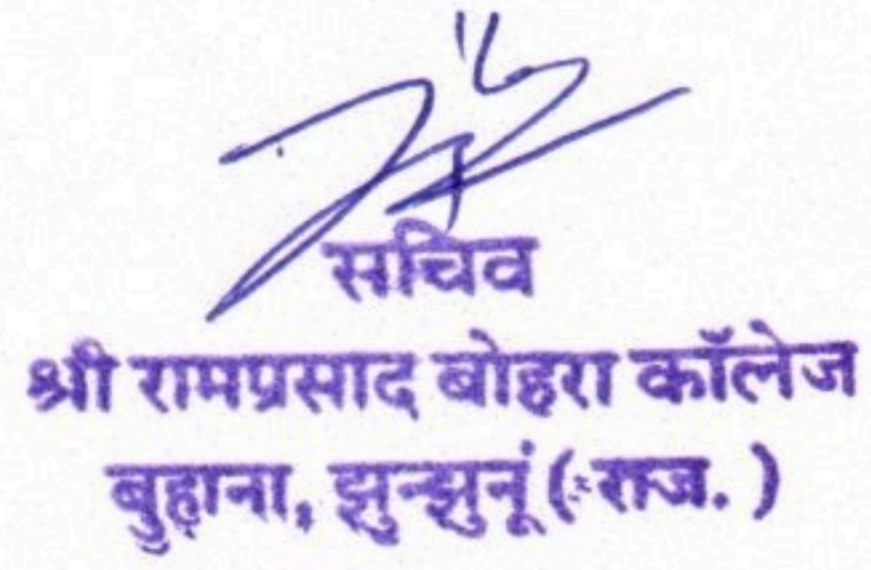 सचिव
श्री रामप्रसाद बोहरा कॉलेज
बुहाना, झुन्झुनूं (राज. )